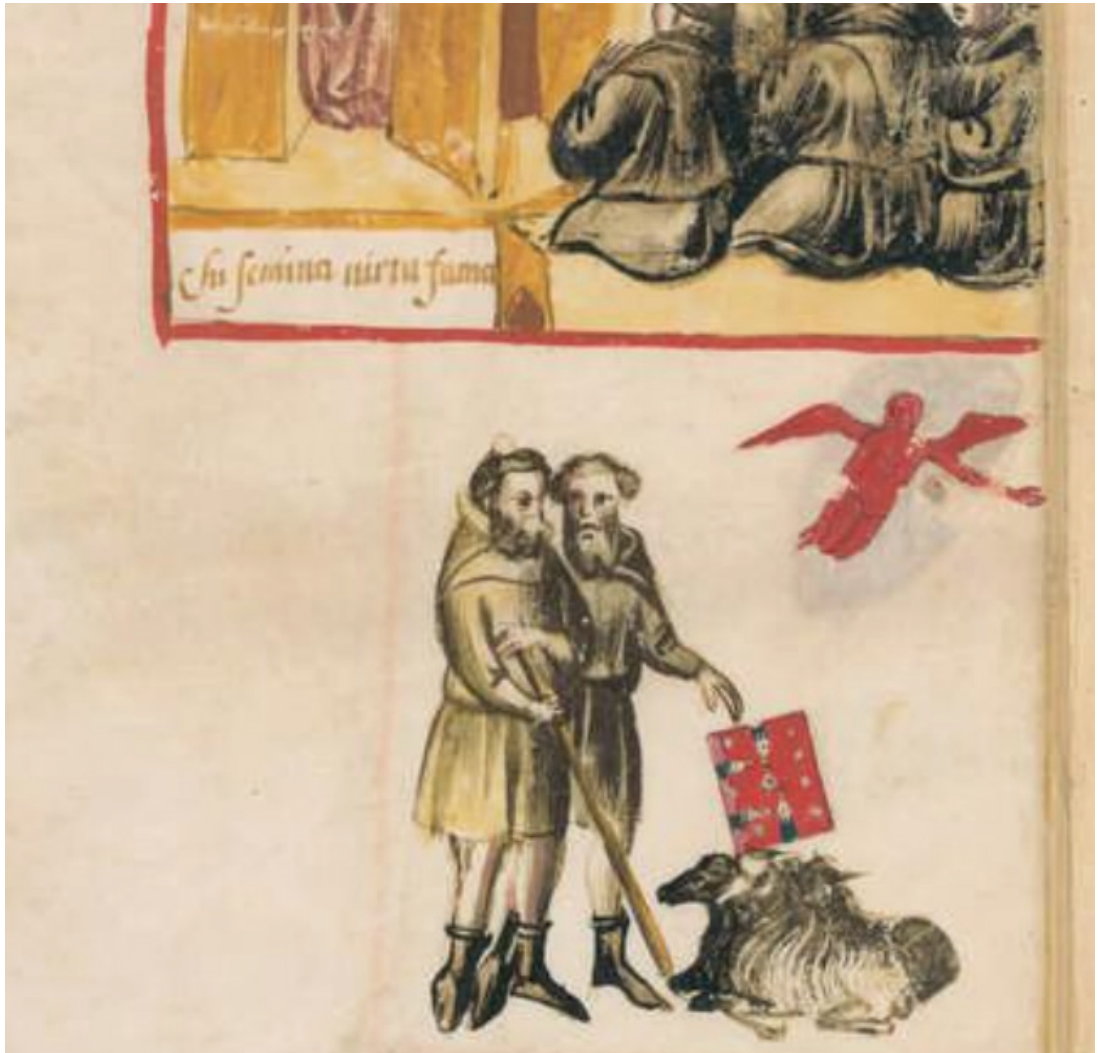 Chi semina uirtu fama